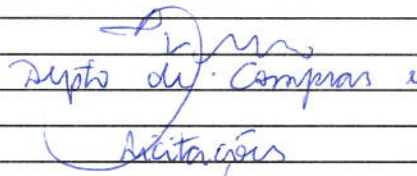 Depto de Compras e
Licitações